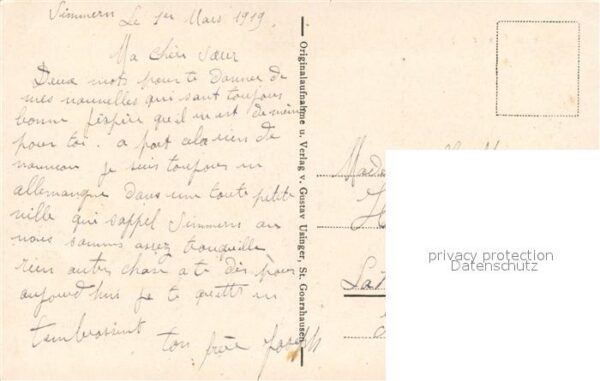 Simmern Le 1er Mars 1919
Ma chère Sœur
Deux mots pour te donner de
mes nouvelles qui sont toujours
bonne j'espère qu'il en est de même
pour toi. a part cela rien de
nouveau je suis toujours en
allemangne dans une toute petite
ville qui s'appel Simmern ou
nous sommes assez tranquille
rien autre chose a te dis pour
aujourd'hui je te quitte en
t'embrassent
ton frère Joseph
Originalaufnahme u. Verlag v. Gustav Usinger, St. Goarshausen
privacy protection
Datenschutz